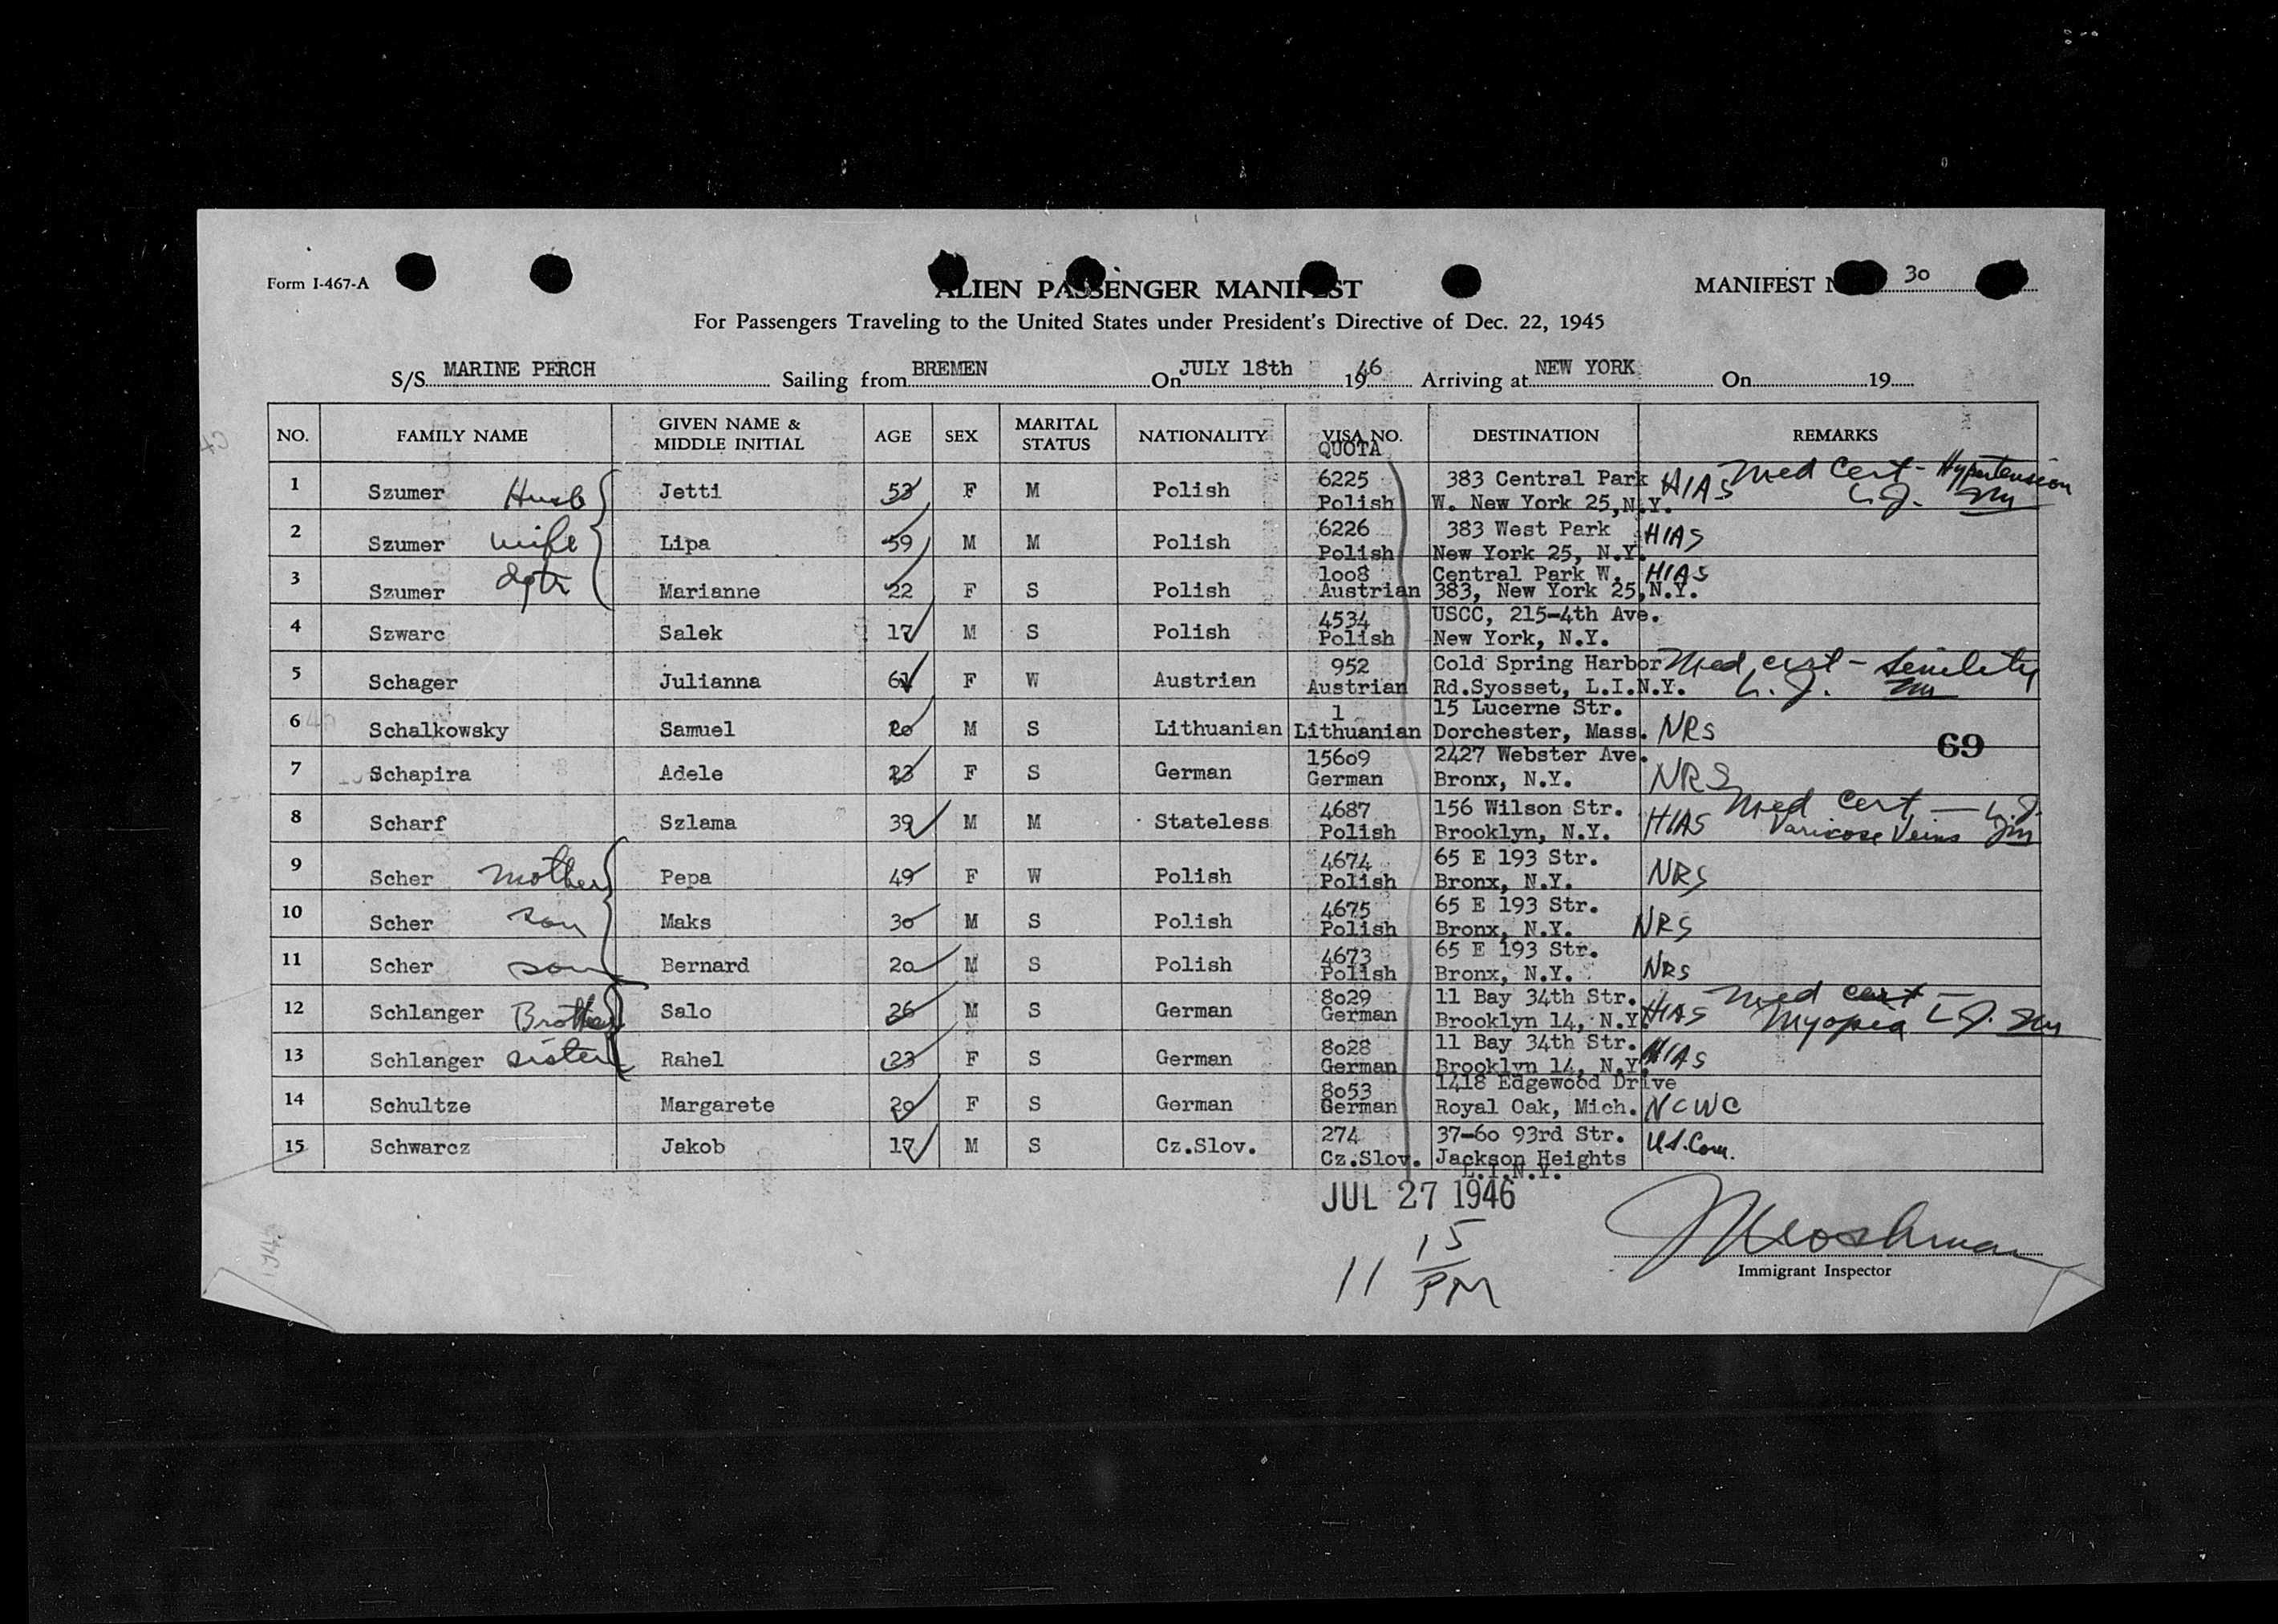 Form I-467-A
ALIEN PASSENGER MANIFEST
MANIFEST N 30
For Passengers Traveling to the United States under President's Directive of Dec. 22, 1945
S/S MARINE PERCH Sailing from BREMEN On JULY 18th 1946 Arriving at NEW YORK On 19
NO. FAMILY NAME GIVEN NAME & MIDDLE INITIAL AGE SEX MARITAL STATUS NATIONALITY VISA NO. QUOTA DESTINATION REMARKS
1 Szumer Husb Jetti 53 F M Polish 6225 Polish 383 Central Park W. New York 25, N.Y. HIAS Med Cert - Hypertension
2 Szumer wife Lipa 59 M M Polish 6226 Polish 383 West Park New York 25, N.Y. HIAS
3 Szumer dgtr Marianne 22 F S Polish 1008 Austrian Central Park W. 383, New York 25, N.Y. HIAS
4 Szwarc Salek 17 M S Polish 4534 Polish USCC, 215-4th Ave. New York, N.Y.
5 Schager Julianna F W Austrian 952 Austrian Cold Spring Harbor Rd.Syosset, L.I.N.Y. Med cert - Senility
6 Schalkowsky Samuel 20 M S Lithuanian 1 Lithuanian 15 Lucerne Str. Dorchester, Mass. NRS
7 Schapira Adele 23 F S German 15609 German 2427 Webster Ave. Bronx, N.Y. NRS
69
8 Scharf Szlama 39 M M Stateless 4687 Polish 156 Wilson Str. Brooklyn, N.Y. HIAS Med Cert - Varicose Veins
9 Scher Mother Pepa 49 F W Polish 4674 Polish 65 E 193 Str. Bronx, N.Y. NRS
10 Scher son Maks 30 M S Polish 4675 Polish 65 E 193 Str. Bronx, N.Y. NRS
11 Scher son Bernard 20 M S Polish 4673 Polish 65 E 193 Str. Bronx, N.Y. NRS
12 Schlanger Brother Salo 26 M S German 8029 German 11 Bay 34th Str. Brooklyn 14, N.Y. HIAS Med cert - Myopia
13 Schlanger sister Rahel 23 F S German 8028 German 11 Bay 34th Str. Brooklyn 14, N.Y. HIAS
14 Schultze Margarete 20 F S German 8053 German 1418 Edgewood Drive Royal Oak, Mich. NCWC
15 Schwarcz Jakob 17 M S Cz.Slov. 274 Cz.Slov. 37-60 93rd Str. Jackson Heights L.I.N.Y. U.S.Com.
JUL 27 1946
11 15 PM
Immigrant Inspector